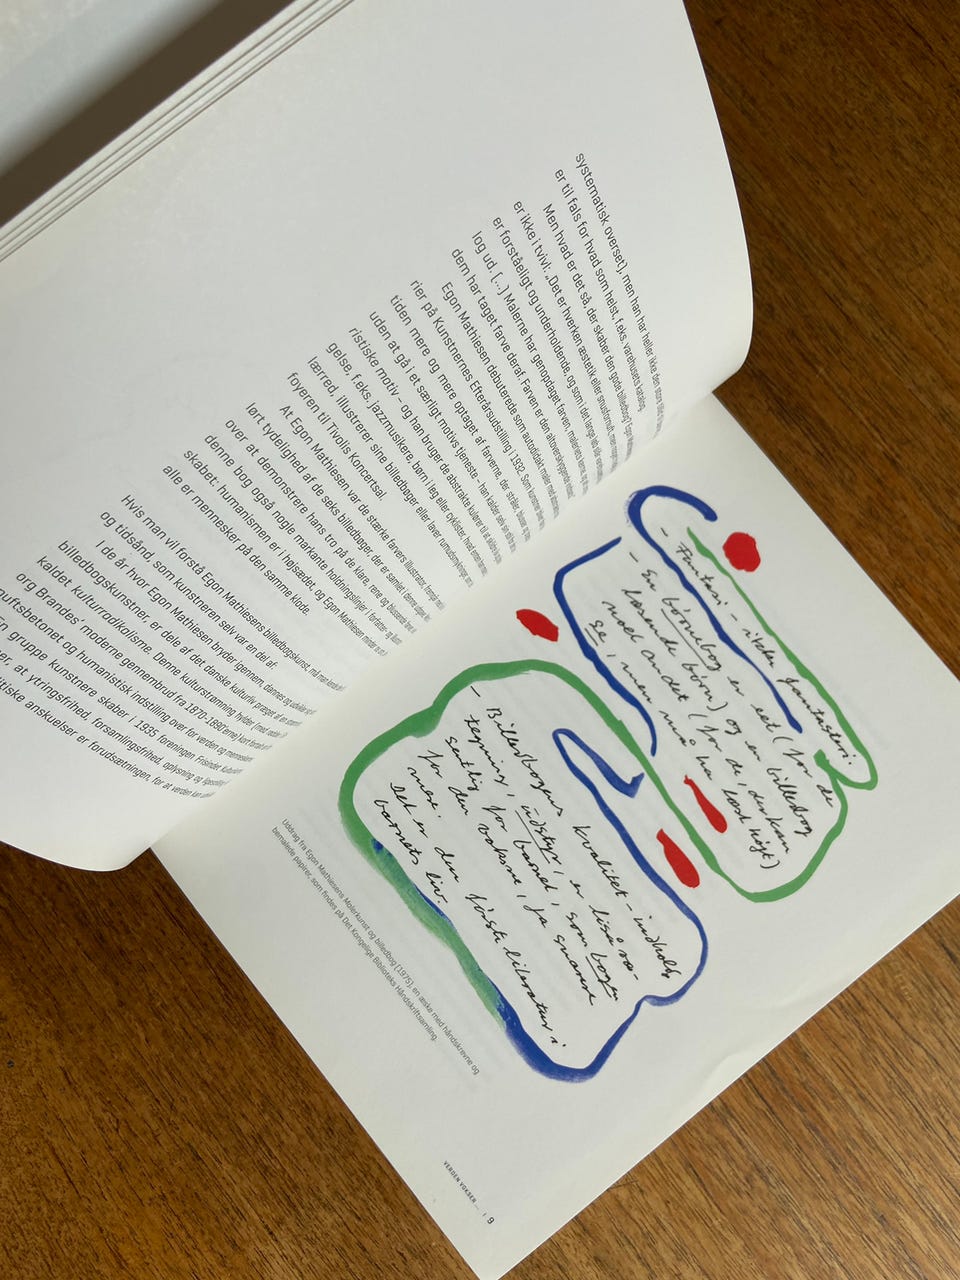 systematisk overset), men han har heller ikke den
er til fals for hvad som helst, f.eks. varehusets katalog.
Men hvad er det så, der skaber den gode billedbog?
er ikke i tvivl: „Det er hverken æstetik eller snusfornuft, men
er forståeligt og underholdende, og som i det lange løb
log ud. [...] Malerne har genopdaget farven, maleriets
dem har taget farve deraf. Farven er den altoverskyggende
Egon Mathiesen debuterede som autodidakt maler med
rier på Kunstnernes Efterårsudstilling i 1932. Som kunstner blev
tiden mere og mere optaget af farverne, der stråler,
uden at gå i et særligt motivs tjeneste – han kalder selv sin stil
ristiske motiv – og han bruger de abstrakte kulører til at
gelse, f.eks. jazzmusikere, børn i leg eller cyklister, hvad enten
lærred, illustrerer sine billedbøger eller laver rumudsmykninger
foyeren til Tivolis Koncertsal.
At Egon Mathiesen var de stærke farvers illustrator, fremgår
lørt tydelighed af de seks billedbøger, der er samlet i denne
over at demonstrere hans tro på de klare, rene og blussende
denne bog også nogle markante holdningslinjer i forfatter- og
skabet: humanismen er i højsædet, og Egon Mathiesen minder
alle er mennesker på den samme klode.
Hvis man vil forstå Egon Mathiesens billedbogskunst, må man
og tidsånd, som kunstneren selv var en del af.
I de år hvor Egon Mathiesen bryder igennem, dannes og udvikler
billedbogskunstner, er dele af det danske kulturliv præget af en
kaldet kulturradikalisme. Denne kulturstrømning hylder (med rødder
org Brandes' moderne gennembrud fra 1870-1890'erne) kort fortalt
nuftsbetonet og humanistisk indstilling over for verden og mennesket
En gruppe kunstnere skaber i 1935 foreningen Frisindet
er, at ytringsfrihed, forsamlingsfrihed, oplysning og
tiske anskuelser er forudsætningen for at verden kan
- Fantasi - ikke fantasteri:
- En børnebog er eet (for de
læsende børn) og en billedbog
noget andet (for de, der kan
se, men må ha læst højt)
- Billedbogens kvalitet - indhold,
tegning, udstyr, er ligeså væ-
sentlig for barnet, som bogen
for den voksne, ja snarere
mere.
Det er den første literatur i
barnets liv.
Uddrag fra Egon Mathiesens Malerkunst og billedbog (1975), en æske med håndskrevne og
bemalede papirer, som findes på Det Kongelige Biblioteks Håndskriftsamling.
VERDEN VOKSER ... | 9